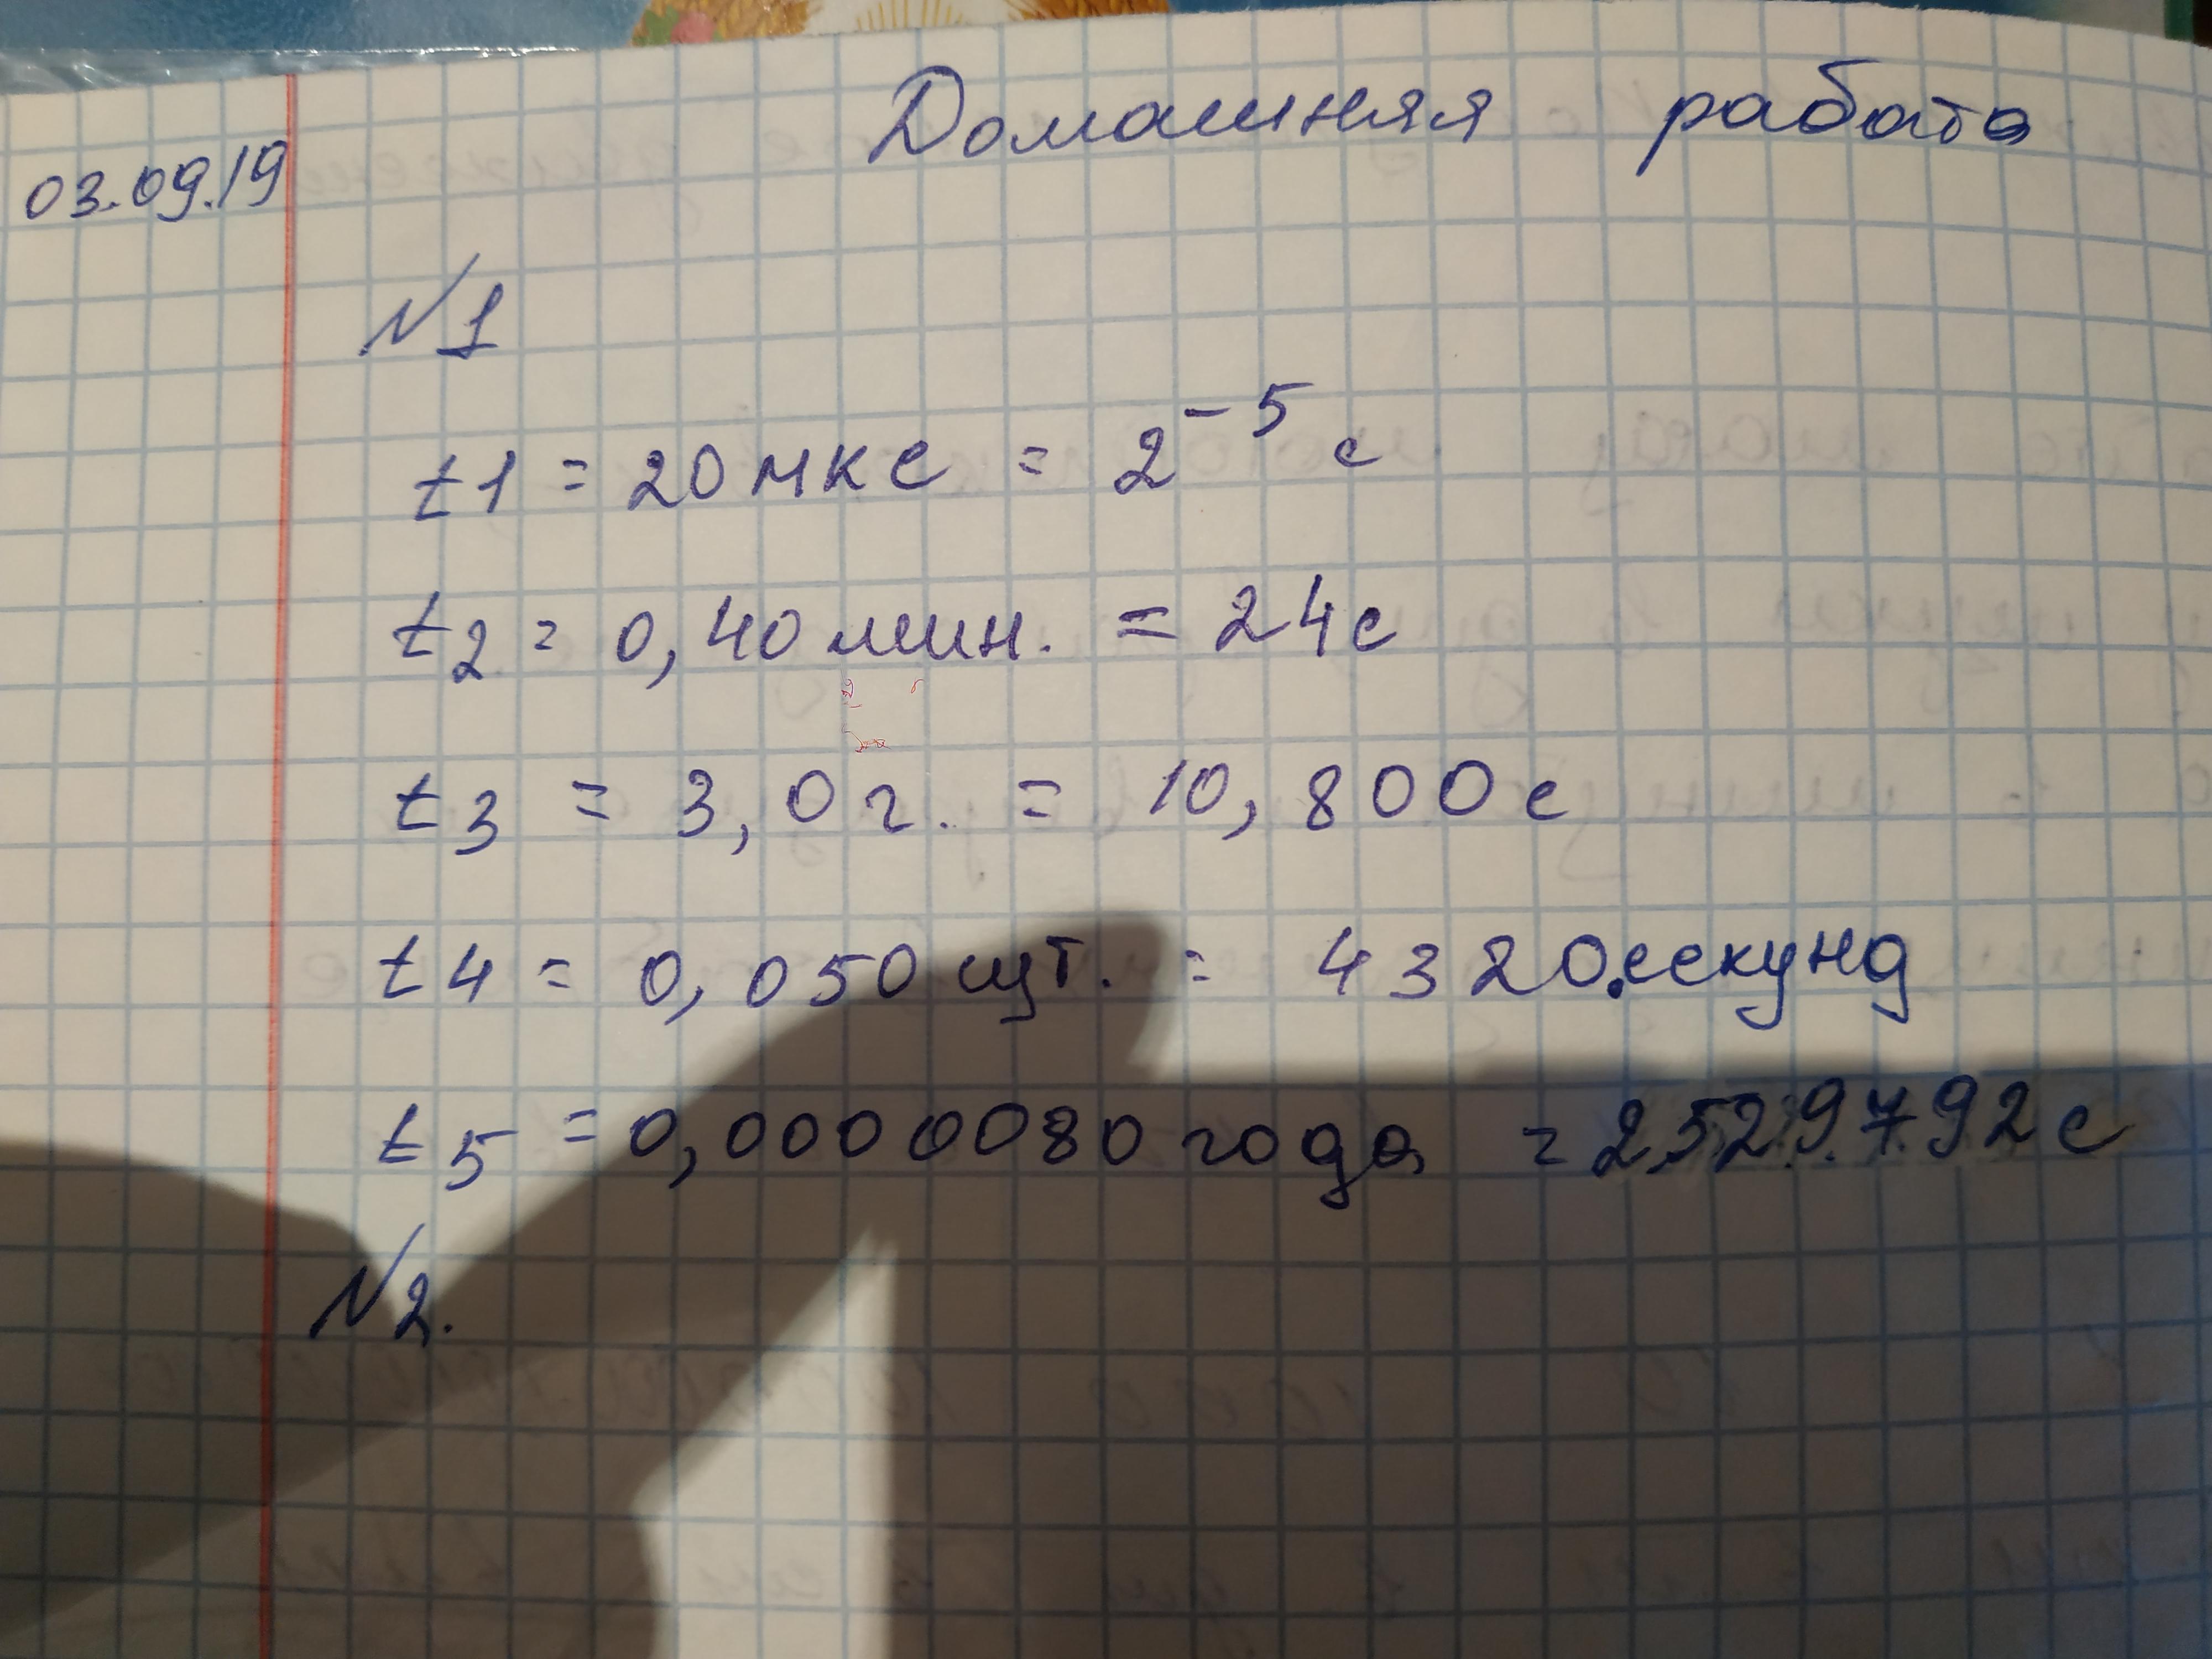 Домашняя работа
03.09.19
№1
t1 = 20 мкс = 2⁻⁵ с
t2 = 0,40 мин. = 24с
t3 = 3,0 г. = 10,800с
t4 = 0,050 сут. = 4320.секунд
t5 = 0,0000080 года = 252.9.7.92с
№2.